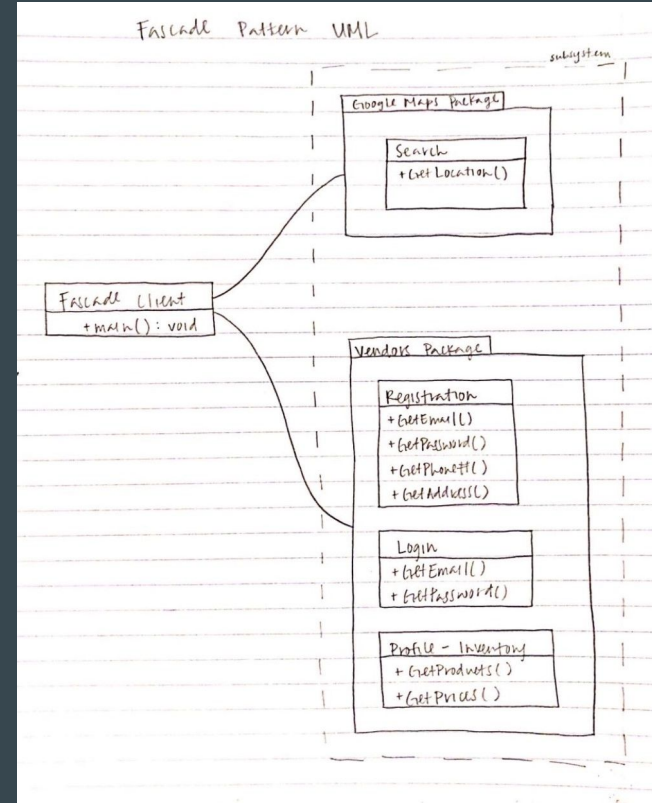 Fascade Pattern UML
subsystem
Google Maps Package
Search
+GetLocation()
Fascade Client
+main() : void
Vendors Package
Registration
+GetEmail()
+GetPassword()
+GetPhone#()
+GetAddress()
Login
+GetEmail()
+GetPassword()
Profile - Inventory
+GetProducts()
+GetPrices()